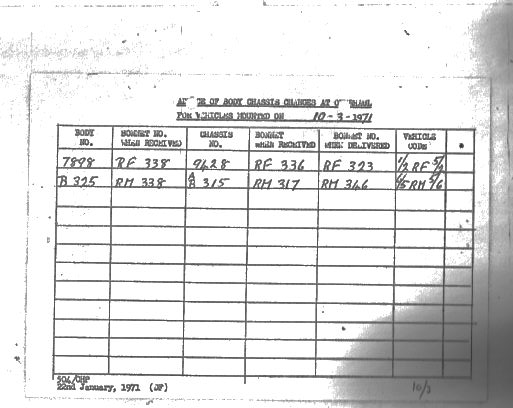 OF BODY CHASSIS CHANGES AT
FOR VEHICLES MOUNTED ON 10-3-1971
BODY NO. BONNET NO. WHEN RECEIVED CHASSIS NO. BONNET WHEN RECEIVED BONNET NO. WHEN DELIVERED VEHICLE CODE
7898 RF 338 9428 RF 336 RF 323 1/2 RF 5/2
B 325 RM 338 B 315 RM 317 RM 346 RM
504/OHP
22nd January, 1971 (JP)
10/3